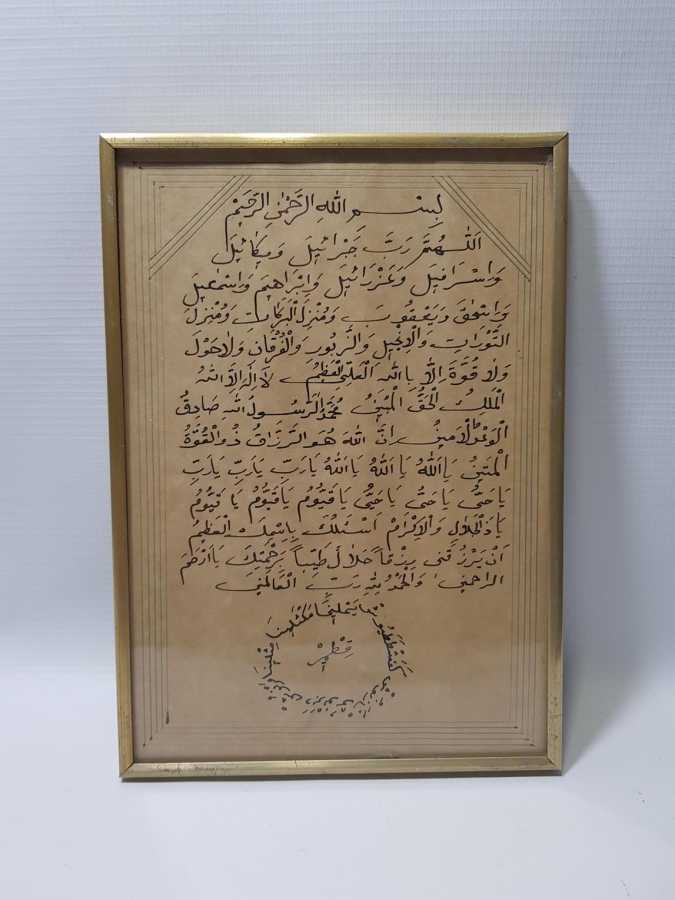 بِسْمِ اللهِ الرَّحْمٰنِ الرَّحِيْمِ
اَللّٰهُمَّ رَبَّ جَبْرَائِيلَ وَمِيكَائِيلَ
وَاِسْرَافِيلَ وَعَزْرَائِيلَ وَاِبْرَاهِيمَ وَاِسْمٰعِيلَ
وَاِسْحٰقَ وَيَعْقُوبَ وَمُنْزِلَ الْبَرَكَاتِ وَمُنْزِلَ
التَّوْرَاتِ وَالْاِنْجِيلِ وَالزَّبُورِ وَالْفُرْقَانِ وَلَا حَوْلَ
وَلَا قُوَّةَ اِلَّا بِاللهِ الْعَلِيِّ الْعَظِيمِ لَا اِلٰهَ اِلَّا اللهُ
الْمَلِكُ الْحَقُّ الْمُبِينُ مُحَمَّدٌ الرَّسُولُ اللهِ صَادِقُ
الْوَعْدِ الْاَمِينُ اِنَّ اللهَ هُوَ الرَّزَّاقُ ذُو الْقُوَّةِ
الْمَتِينُ يَا اَللهُ يَا اَللهُ يَا اَللهُ يَارَبِّ يَارَبِّ يَارَبِّ
يَا حَيُّ يَا حَيُّ يَا حَيُّ يَا قَيُّومُ يَا قَيُّومُ يَا قَيُّومُ
يَا ذَالْجَلَالِ وَالْاِكْرَامِ اَسْئَلُكَ بِاِسْمِكَ الْعَظِيمُ
اَنْ يَرْزُقَنِى رِزْقاً حَلَالً طَيِّباً بِرَحْمَتِكَ يَا اَرْحَمَ
الرَّاحِمِينَ وَالْحَمْدُ لِلّٰهِ رَبِّ الْعَالَمِينَ
يَمْلِيخَا مَكْثَلِينَا مِثْلِينَا
كَفَشْطَطَيُوشْ
قِطْمِيرْ